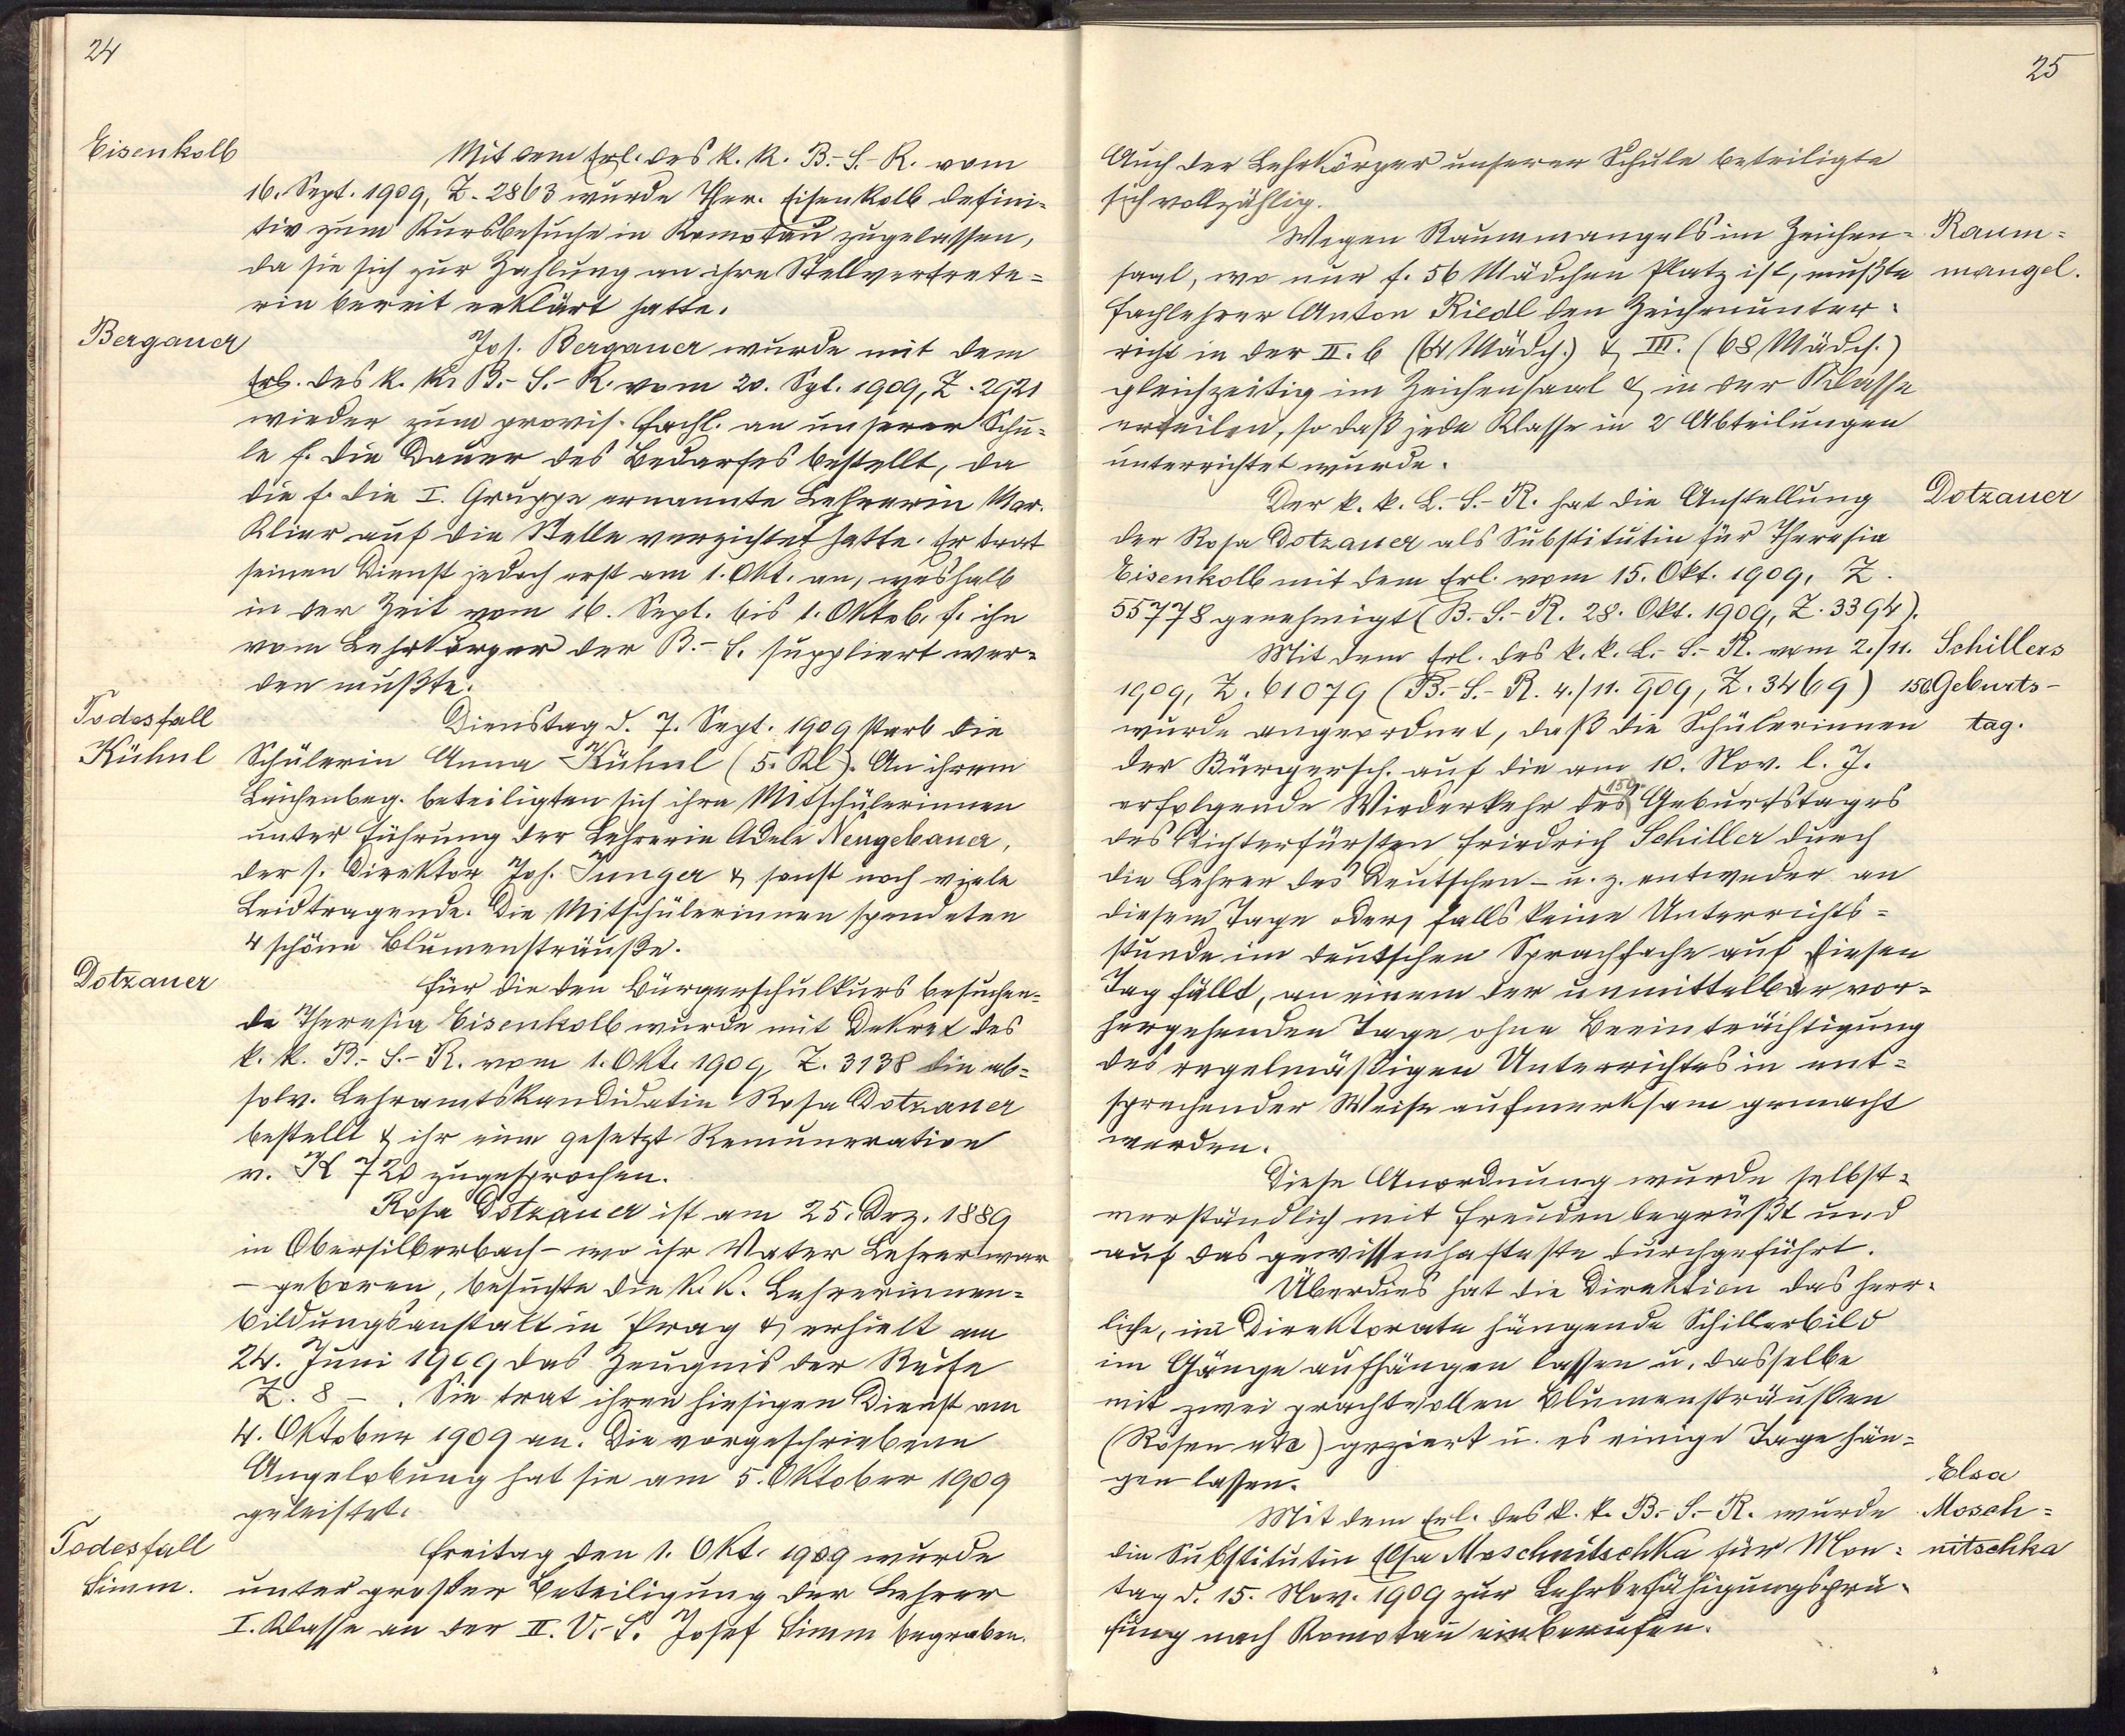 24
Eisenkolb
Mit dem Erl. des k. k. B.-S.-R. vom
16. Sept. 1909, Z. 2863 wurde Ther. Eisenkolb defini-
tiv zum Kursbesuche in Komotau zugelassen,
da sie sich zur Zahlung an ihre Stellvertrete-
rin bereit erklärt hatte.
Bergauer
Jos. Bergauer wurde mit dem
Erl. des k. k. B.-S.-R. vom 20. Spt. 1909, Z. 2921
wieder zum provis. Fachl. an unserer Schu-
le f. die Dauer des Bedarfes bestellt, da
die f. die I. Gruppe ernannte Lehrerin Mar.
Klier auf die Stelle verzichtet hatte. Er trat
seinen Dienst jedoch erst am 1. Okt. an, weshalb
in der Zeit vom 16. Sept. bis 1. Oktob. f. ihn
vom Lehrkörper der B.-S. suppliert wer-
den mußte.
Todesfall
Kühnl
Dienstag d. 7. Sept. 1909 starb die
Schülerin Anna Kühnl (5. Kl). An ihrem
Leichenbeg. beteiligten sich ihre Mitschülerinnen
unter Führung der Lehrerin Adele Neugebauer,
der s. Direktor Jos. Junger & sonst noch viele
Leidtragende. Die Mitschülerinnen spendeten
4 schöne Blumensträuße.
Dotzauer
Für die den Bürgerschulkurs besuchen-
de Theresia Eisenkolb wurde mit Dekret des
k. k. B.-S.-R. vom 1. Okt. 1909, Z. 3138 die ab-
solv. Lehramtskandidatin Rosa Dotzauer
bestellt & ihr eine gesetzt Remuneration
v. K 720 zugesprochen.
Rosa Dotzauer ist am 25. Dez. 1889
in Obersilberbach - wo ihr Vater Lehrer war
- geboren, besuchte die k. k. Lehrerinnen-
bildungsanstalt in Prag & erhielt am
24. Juni 1909 das Zeugnis der Reife
Z. 8 - . Sie trat ihren hiesigen Dienst am
4. Oktober 1909 an. Die vorgeschriebene
Angelobung hat sie am 5. Oktober 1909
geleistet.
Todesfall
Simm.
Freitag den 1. Okt. 1909 wurde
unter großer Beteiligung der Lehrer
I. Klasse an der II. V.-S. Josef Simm begraben.
25
Auch der Lehrkörper unserer Schule beteiligte
sich vollzählig.
Raum-
mangel.
Wegen Raummangels im Zeichen-
saal, wo nur f. 56 Mädchen Platz ist, mußte
Fachlehrer Anton Riedl den Zeichenunter-
richt in der II. b (64 Mädch.) & III. (68 Mädch.)
gleichzeitig im Zeichensaal & in der Klasse
erteilen, so daß jede Klasse in 2 Abteilungen
unterrichtet wurde.
Dotzauer
Der k. k. L.-S.-R. hat die Anstellung
der Rosa Dotzauer als Substitutin für Theresia
Eisenkolb mit dem Erl. vom 15. Okt. 1909, Z.
55778 genehmigt (B.-S.-R. 28. Okt. 1909, Z. 3394).
Schillers
150. Geburts-
tag.
Mit dem Erl. des k. k. L.-S.-R. vom 2./11.
1909, Z. 61079 (B.-S.-R. 4./11. 909, Z. 3469)
wurde angeordnet, daß die Schülerinnen
der Bürgersch. auf die am 10. Nov. l. J.
erfolgende Wiederkehr des 150. Geburtstages
des Dichterfürsten Friedrich Schiller durch
die Lehrer des Deutschen - u. z. entweder an
diesem Tage oder, falls keine Unterrichts-
stunde im deutschen Sprachfache auf diesen
Tag fällt, an einem der unmittelbar vor-
hergehenden Tage ohne Beeinträchtigung
des regelmäßigen Unterrichtes in ent-
sprechender Weise aufmerksam gemacht
werden.
Diese Anordnung wurde selbst-
verständlich mit Freuden begrüßt und
auf das gewissenhafteste durchgeführt.
Überdies hat die Direktion das herr-
liche, im Direktorate hängende Schillerbild
im Gange aufhängen lassen u. dasselbe
mit zwei prachtvollen Blumensträußen
(Rosen etc) geziert u. es einige Tage hän-
gen lassen.
Elsa
Mosch-
nitschka
Mit dem Erl. des k. k. B.-S.-R. wurde
die Substitutin Elsa Moschnitschka für Mon-
tag d. 15. Nov. 1909 zur Lehrbefähigungsprü-
fung nach Komotau einberufen.